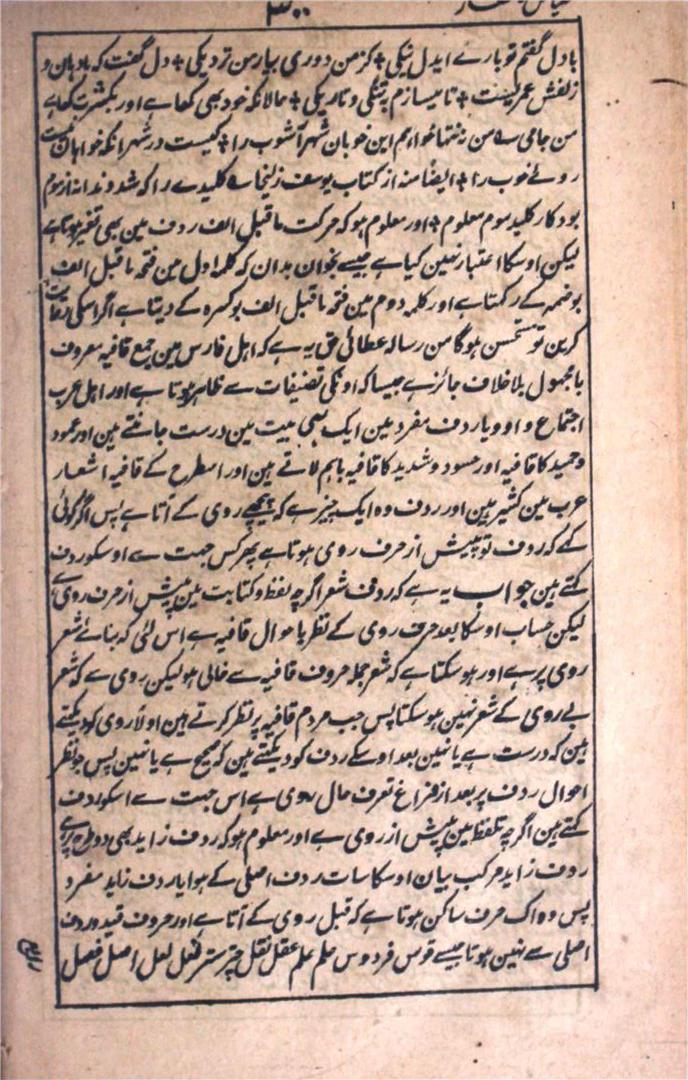 ۳۰۰
بادل گفتم تو بارے ایدل نیکی ٭ کز من دوری بیار من نزدیکی ٭ دل گفت که با دہان و
زلفش عمریست ٭ تا میسازم بہ تنگی و تاریکی ٭ حالانکہ خود بھی کھا ہے اور بکثرت کھا ہے
من جامی ے من نہ تنہا خواہم این خوبان شہر آشوب را ٭ کیست در شہر آنکہ خواہان نیست
روئے خوب را ٭ ایضًا منہ از کتاب یوسف زلیخا ے کلیدے را کہ شد دندانہ از موم
بود کار کلید موم معلوم ٭ اور معلوم ہو کہ حرکت ماقبل الف ردف مین بھی تغیر ہوتا ہے
لیکن اوسکا اعتبار نہین کیا ہے جیسے بخوان بدان کہ کلمہ اول مین فتحہ ماقبل الف
بو ضمہ کے رکھتا ہے اور کلمہ دوم مین فتحہ ماقبل الف بو کسرہ کے دیتا ہے اگر اسکی رعایت
کرین تو مستحسن ہوگا من رسالہ عطائی حق یہ ہے کہ اہل فارس مین جمع قافیہ معروف
با مجہول بلا خلاف جائز ہے جیسا کہ اونکی تصنیفات سے ظاہر ہوتا ہے اور اہل عرب
اجتماع واو و یا ردف مفرد مین ایک ہی بیت مین درست جانتے ہین اور عمود
وحمید کا قافیہ اور حسود و شدید کا قافیہ باہم لاتے ہین اور اسطرح کے قافیہ اشعار
عرب مین کثیر ہین اور ردف وہ ایک چیز ہے کہ پیچھے روی کے آتا ہے پس اگر کوئی
کہے کہ ردف تو پیش از حرف روی ہوتا ہے پھر کس جہت سے اوسکو ردف
کہتے ہین جواب یہ ہے کہ ردف شعر اگرچہ لفظ و کتابت مین پیش از حرف روی ہے
لیکن حساب اوسکا بعد حرف روی کے نظر باحوال قافیہ ہے اس لئی کہ بنائے شعر
روی پر ہے اور ہو سکتا ہے کہ شعر جملہ حروف قافیہ سے خالی ہو لیکن روی سے کہ شعر
بے روی کے شعر نہین ہو سکتا پس جب مردم قافیہ پر نظر کرتے ہین اولًا روی کو دیکھتے
ہین کہ درست ہے یا نہین بعد اوسکے ردف کو دیکھتے ہین کہ صحیح ہے یا نہین پس جو نظر
احوال ردف پر بعد از فراغ تعرف حال روی ہے اس جہت سے اسکو ردف
کہتے ہین اگرچہ تلفظ مین پیش از روی ہے اور معلوم ہو کہ ردف زاید بھی دو طرح پر ہے
ردف زاید مرکب بیان اوسکا سات ردف اصلی کے ہوا یا ردف زاید مفرد
پس وہ اک حرف ساکن ہوتا ہے کہ قبل روی کے آتا ہے اور حروف قید و ردف
اصلی سے نہین ہوتا جیسے قوس فردوس علم علم عقل نقل چتر ستر فعل لعل اصل فصل